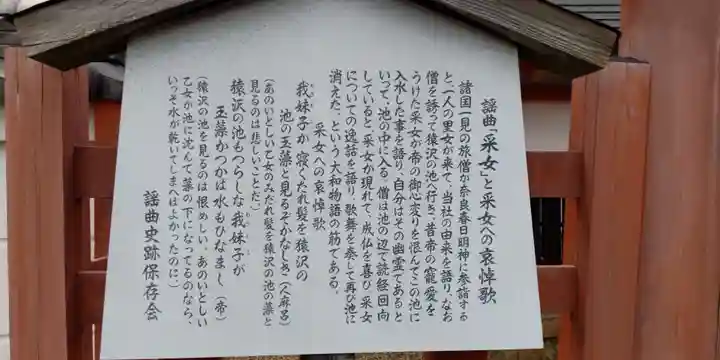 謡曲「采女」と采女への哀悼歌
諸国一見の旅僧が奈良春日明神に参詣する
と、一人の里女が来て、当社の由来を語り、なお
僧を誘って猿沢の池へ行き、昔帝の寵愛を
うけた采女が帝の御心変りを恨んでこの池に
入水した事を語り、自分はその幽霊であると
いって、池の中に入る。僧は池の辺で読経回向
していると采女が現れて、成仏を喜び、采女
についての逸話を語り、歌舞を奏して再び池に
消えた、という大和物語の筋である。
采女への哀悼歌
我妹子が寝くたれ髪を猿沢の
池の玉藻と見るぞかなしき(人麻呂)
(あのいとしい乙女のみだれ髪を猿沢の池の藻と
見るのは悲しいことだ。)
猿沢の池もつらしな我妹子が
玉藻かつかは水もひなまし(帝)
(猿沢の池を見るのは恨めしい。あのいとしい
乙女が池に沈んで藻の下になってるのなら、
いっそ水が乾いてしまへばよかったのに)
謡曲史跡保存会